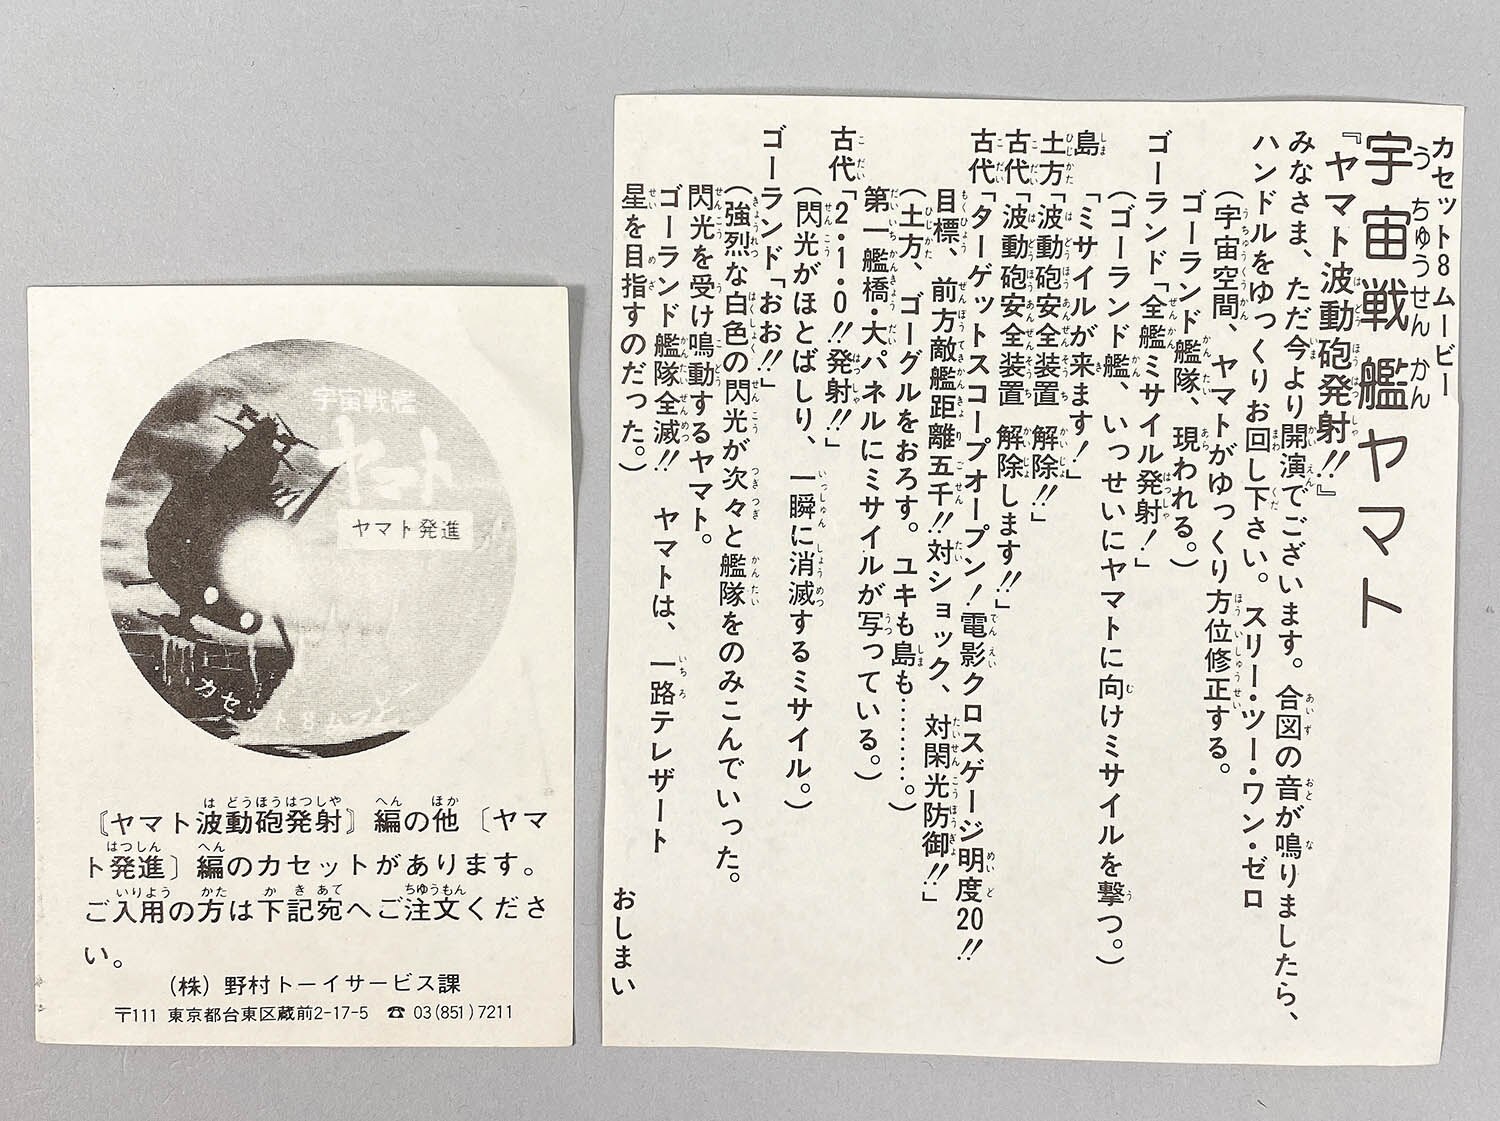 宇宙戦艦
ヤマト
ヤマト発進
カセット8
〚ヤマト波動砲発射〛編の他〔ヤマ
ト発進〕編のカセットがあります。
ご入用の方は下記宛へご注文くださ
い。
(株)野村トーイサービス課
〒111 東京都台東区蔵前2-17-5 ☎ 03(851)7211
カセット8ムービー
宇宙戦艦ヤマト
『ヤマト波動砲発射!!』
みなさま、ただ今より開演でございます。合図の音が鳴りましたら、
ハンドルをゆっくりお回し下さい。スリー・ツー・ワン・ゼロ
(宇宙空間、ヤマトがゆっくり方位修正する。
ゴーランド艦隊、現われる。)
ゴーランド「全艦ミサイル発射!」
(ゴーランド艦、いっせいにヤマトに向けミサイルを撃つ。)
島「ミサイルが来ます!」
土方「波動砲安全装置 解除!!」
古代「波動砲安全装置 解除します!!」
古代「ターゲットスコープオープン!電影クロスゲージ明度20!!
目標、前方敵艦距離五千!!対ショック、対閑光防御!!」
(土方、ゴーグルをおろす。ユキも島も………。)
第一艦橋・大パネルにミサイルが写っている。)
古代「2・1・0!!発射!!」
(閃光がほとばしり、一瞬に消滅するミサイル。)
ゴーランド「おお!!」
(強烈な白色の閃光が次々と艦隊をのみこんでいった。
閃光を受け鳴動するヤマト。
ゴーランド艦隊全滅!! ヤマトは、一路テレザート
星を目指すのだった。)
おしまい